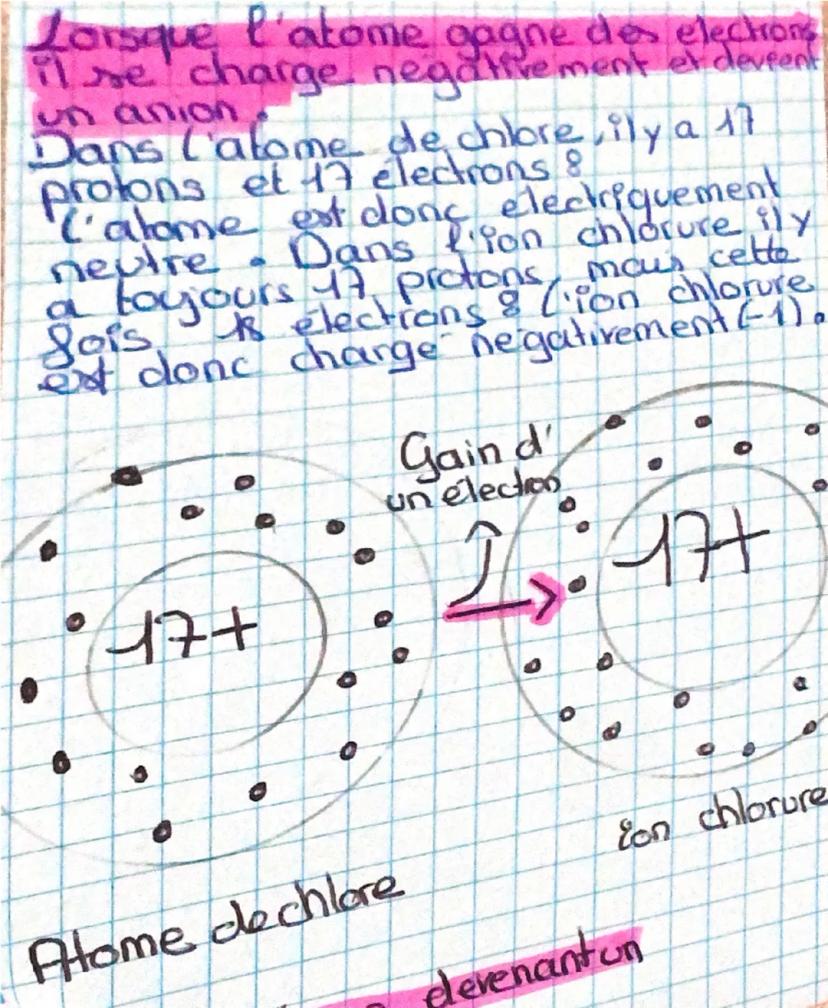 Lorsque l'atome gagne des electrons
il se charge négativement et devient
un anion.
Dans l'atome de chlore, il y a 17
protons et 17 électrons :
l'atome est donc electriquement
neutre. Dans l'ion chlorure il y
a toujours 17 protons, mais cette
fois 18 électrons : l'ion chlorure
est donc chargé négativement (-1).
Gain d'
un électron
17+
17+
ion chlorure
Atome de chlore
devenant un